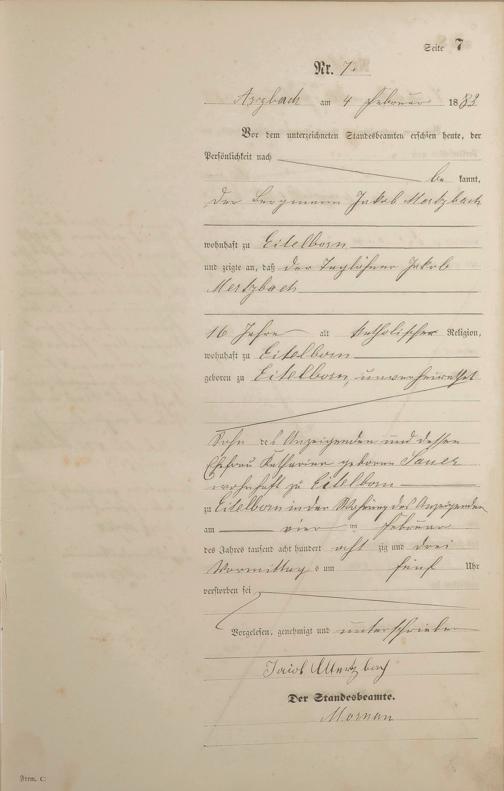 Seite 7
Nr. 7.
Arzbach am 4 Februar 1883
Vor dem unterzeichneten Standesbeamten erschien heute, der
Persönlichkeit nach
be kannt,
der Bergmann Jakob Mertzbach
wohnhaft zu Eitelborn
und zeigte an, daß der Taglöhner Jakob
Mertzbach
16 Jahre alt katholischer Religion,
wohnhaft zu Eitelborn
geboren zu Eitelborn, unverheirathet
Sohn des Anzeigenden und dessen
Ehefrau Katharina geborene Sauer
wohnhaft zu Eitelborn
zu Eitelborn in der Wohnung des Anzeigenden
am vier ten Februar
des Jahres tausend acht hundert acht zig und drei
Vormittag s um fünf Uhr
verstorben sei
Vorgelesen, genehmigt und unterschrieben
Jacob Mertzbach
Der Standesbeamte.
Form. C.